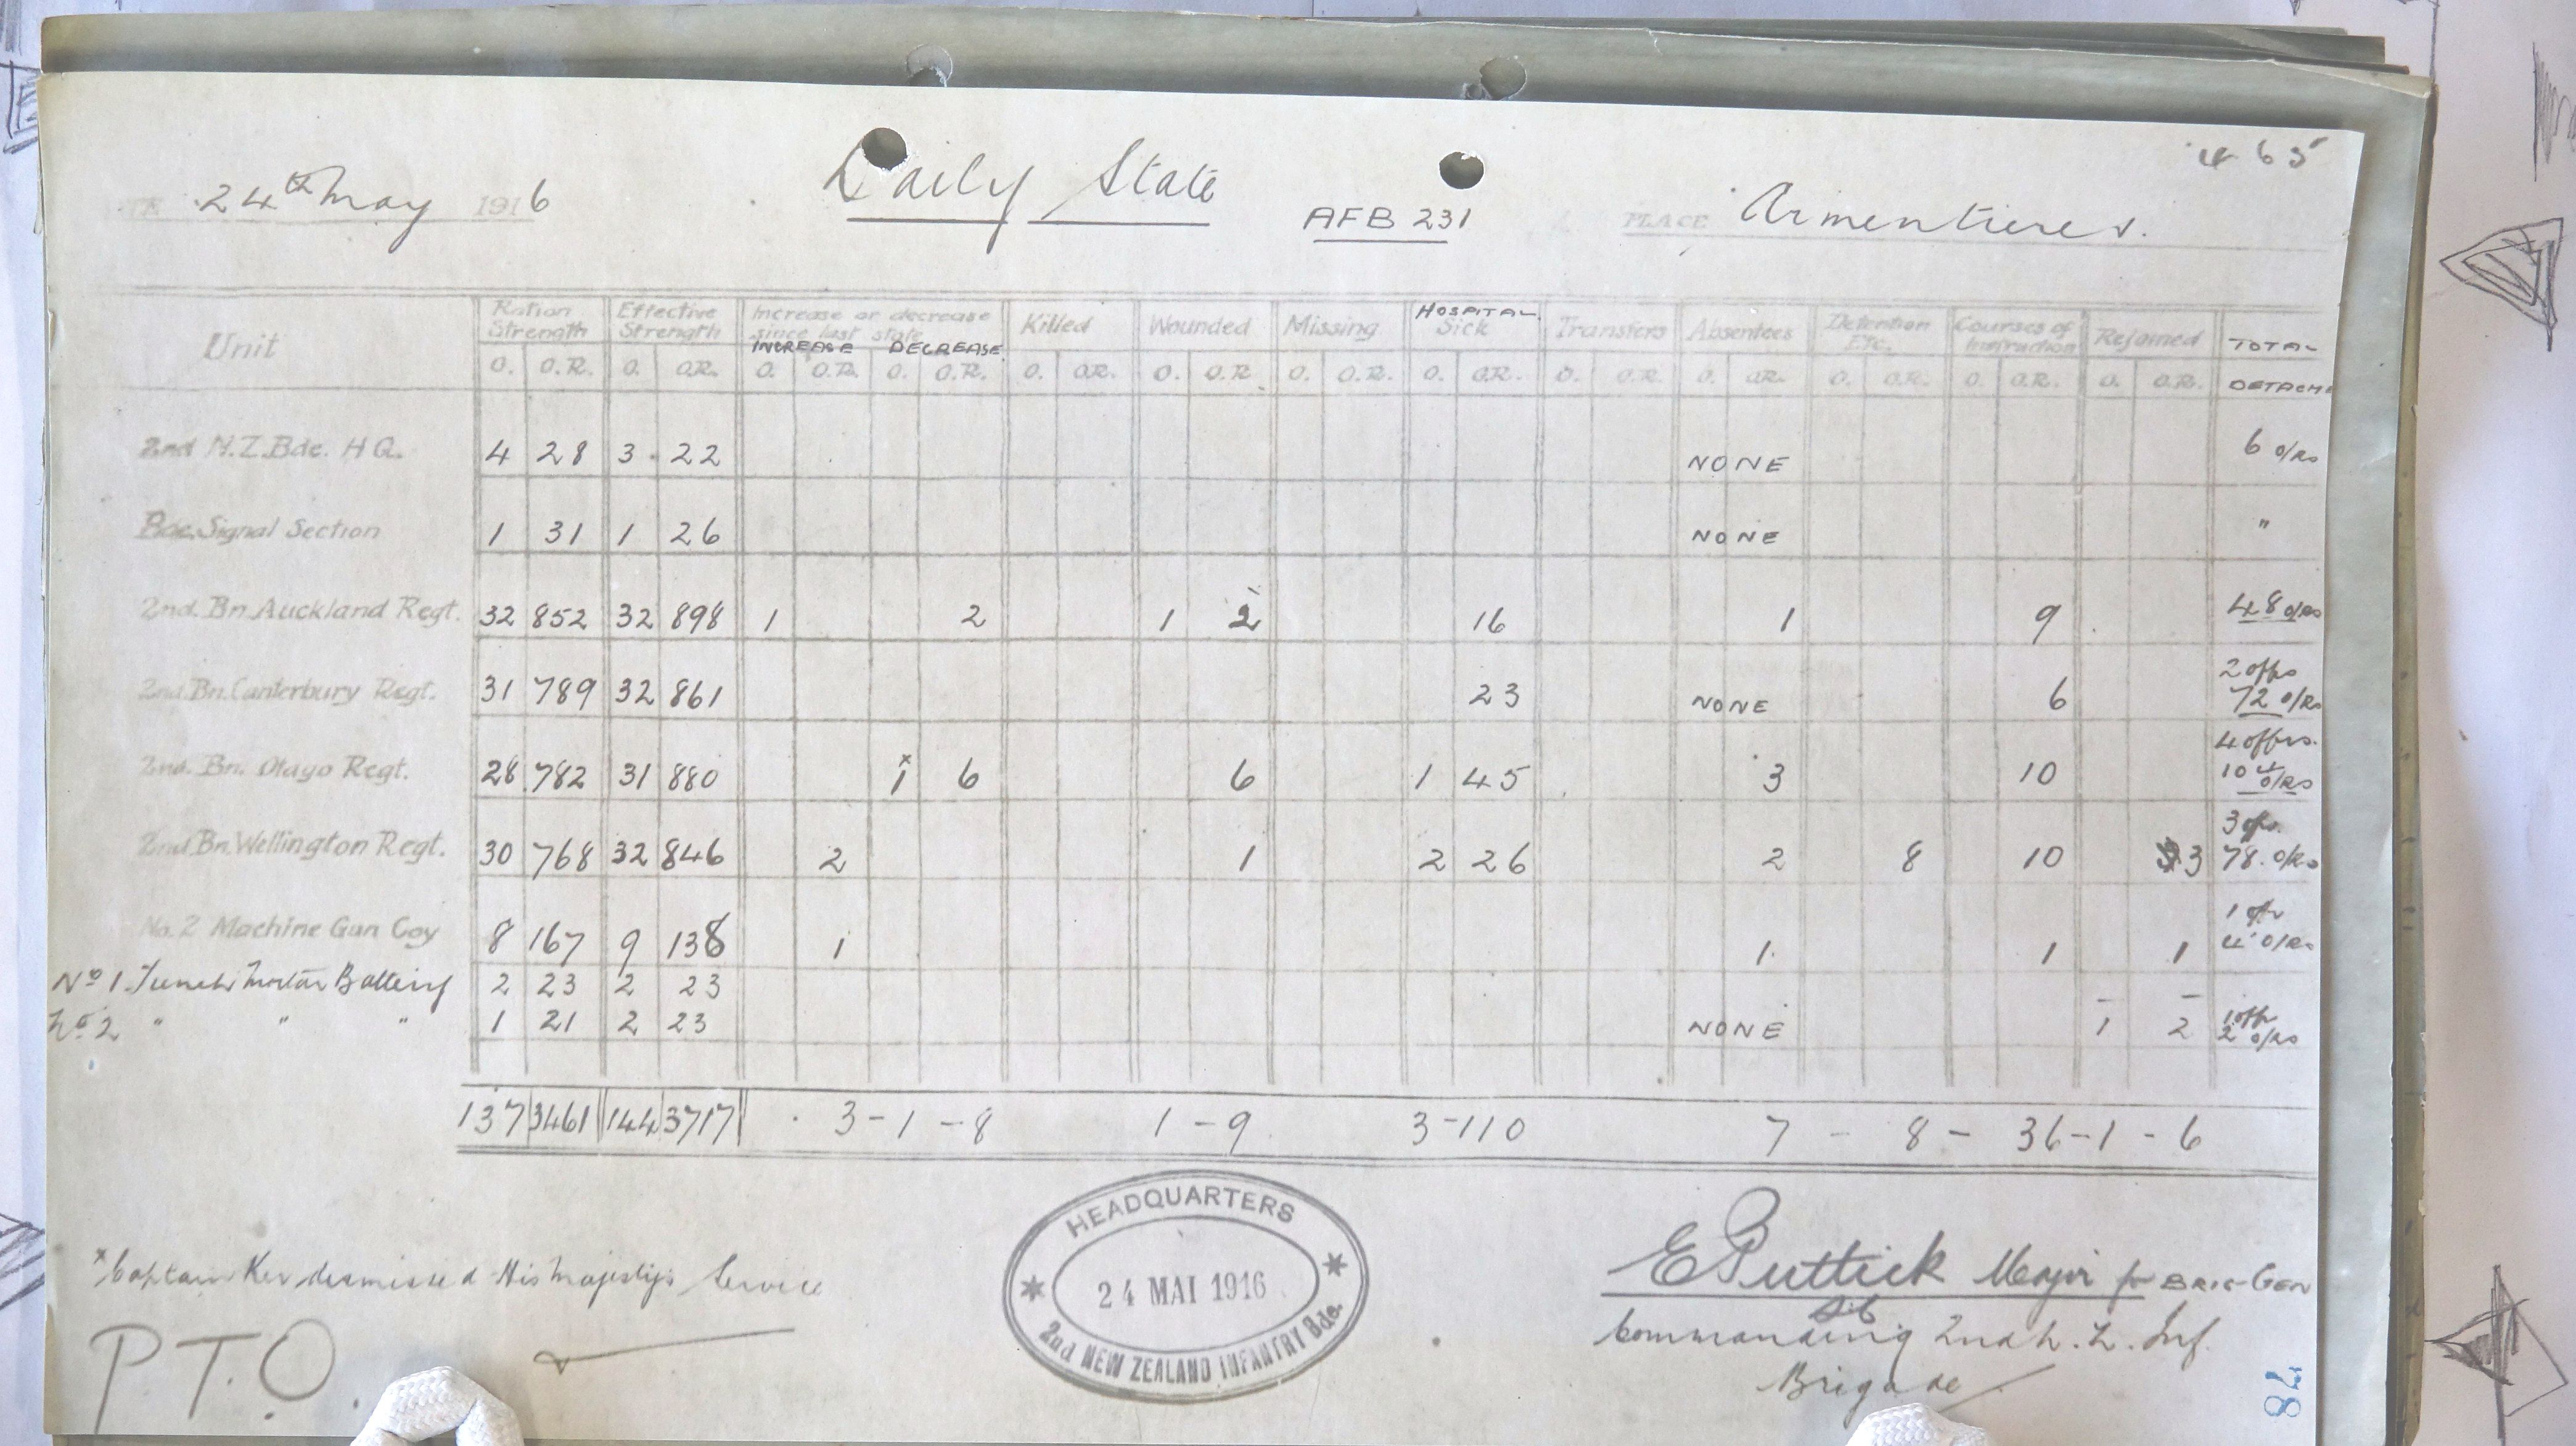 4 65
DATE 24th May 1916 Daily State AFB 231 PLACE Armentieres.
Unit Ration Strength Effective Strength Increase or decrease since last state INCREASE DECREASE Killed Wounded Missing HOSPITAL Sick Transfers Absentees Detention Etc. Courses of Instruction Rejoined TOTAL DETACHE
O. O.R. O. O.R. O. O.R. O. O.R. O. O.R. O. O.R. O. O.R. O. O.R. O. O.R. O. O.R. O. O.R. O. O.R. O. O.R.
2nd N.Z. Bde. H Q. 4 28 3 22 NONE 6 O/Rs
Bde. Signal Section 1 31 1 26 NONE "
2nd. Bn. Auckland Regt. 32 852 32 898 1 2 1 2 16 1 9 48 O/Rs
2nd. Bn. Canterbury Regt. 31 789 32 861 23 NONE 6 2 offrs 72 O/Rs
2nd. Bn. Otago Regt. 28 782 31 880 x 1 6 6 1 45 3 10 4 offrs. 104 O/Rs
2nd Bn. Wellington Regt. 30 768 32 846 2 1 2 26 2 8 10 3 3 ofrs. 78. O/Rs
No. 2 Machine Gun Coy 8 167 9 138 1 1 1 1 1 ofr 4 O/Rs
No 1 Trench Mortar Battery 2 23 2 23 – –
No 2 " " " 1 21 2 23 NONE 1 2 1 offr 2 O/Rs
137 3461 144 3717 3 – 1 – 8 1 – 9 3 – 110 7 – 8 – 36 – 1 – 6
HEADQUARTERS
24 MAI 1916
2nd NEW ZEALAND INFANTRY Bde.
x Captain Ker dismissed His Majestys Service
P.T.O.
E Puttick Major for BRIG-GEN
Commanding 2nd N. Z. Inf.
Brigade
78